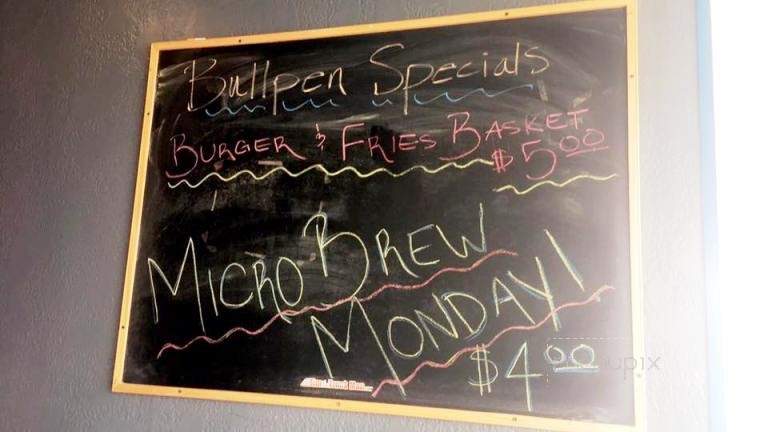 Bullpen Specials
BURGER & FRIES BASKET
$5.00
MICRO BREW
MONDAY!
$4.00